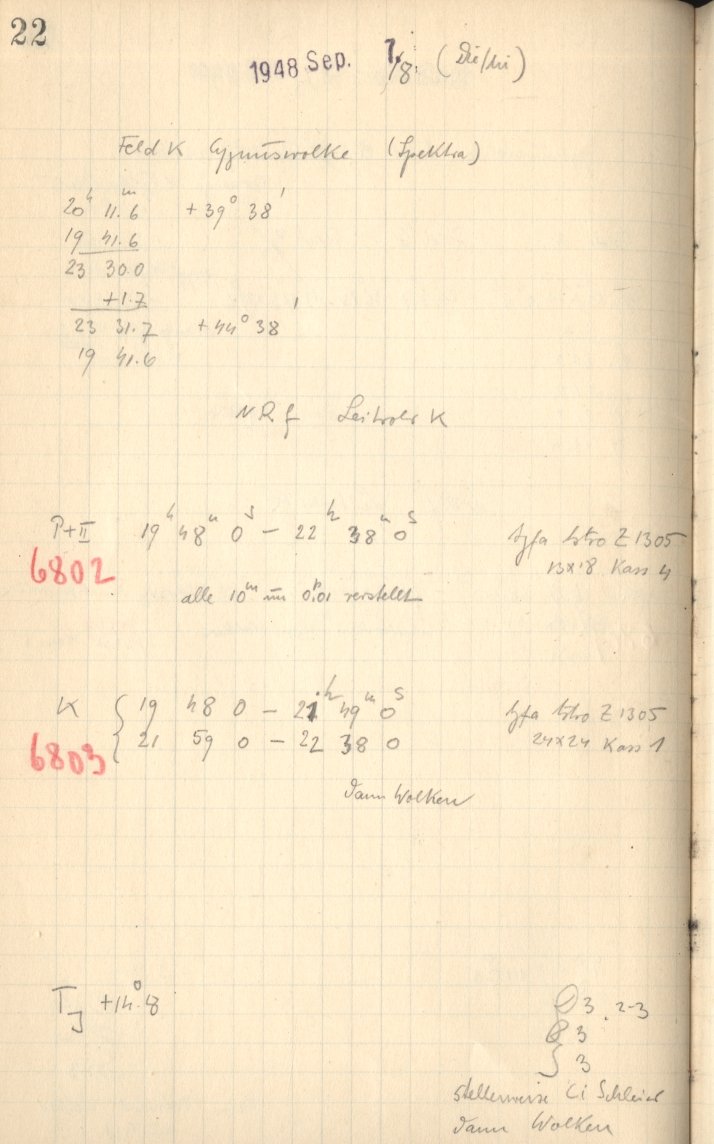 22
1948 Sep. 7./8. (Die/Mi)
Feld K Cygnuswolke (Spektra)
20ʰ 11.6ᵐ +39° 38'
19 41.6
23 30.0
+1.7
23 31.7 +44° 38'
19 41.6
NRf Leitrohr K
P+II 19ʰ 48ᵐ 0ˢ – 22ʰ 38ᵐ 0ˢ Agfa Astro Z 1305
6802 13x18 Kass 4
alle 10ᵐ um 0.01 verstellt
K { 19 48 0 – 21ʰ 49ᵐ 0ˢ Agfa Astro Z 1305
6803 { 21 59 0 – 22 38 0 24x24 Kass 1
dann Wolken
T_J +14°.8
3 . 2-3
3
3
stellenweise Ci Schleier
dann Wolken